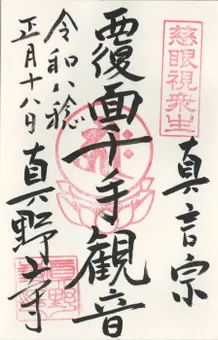 慈眼視衆生
真言宗
覆面千手観音
令和八稔
正月十八日
真野寺